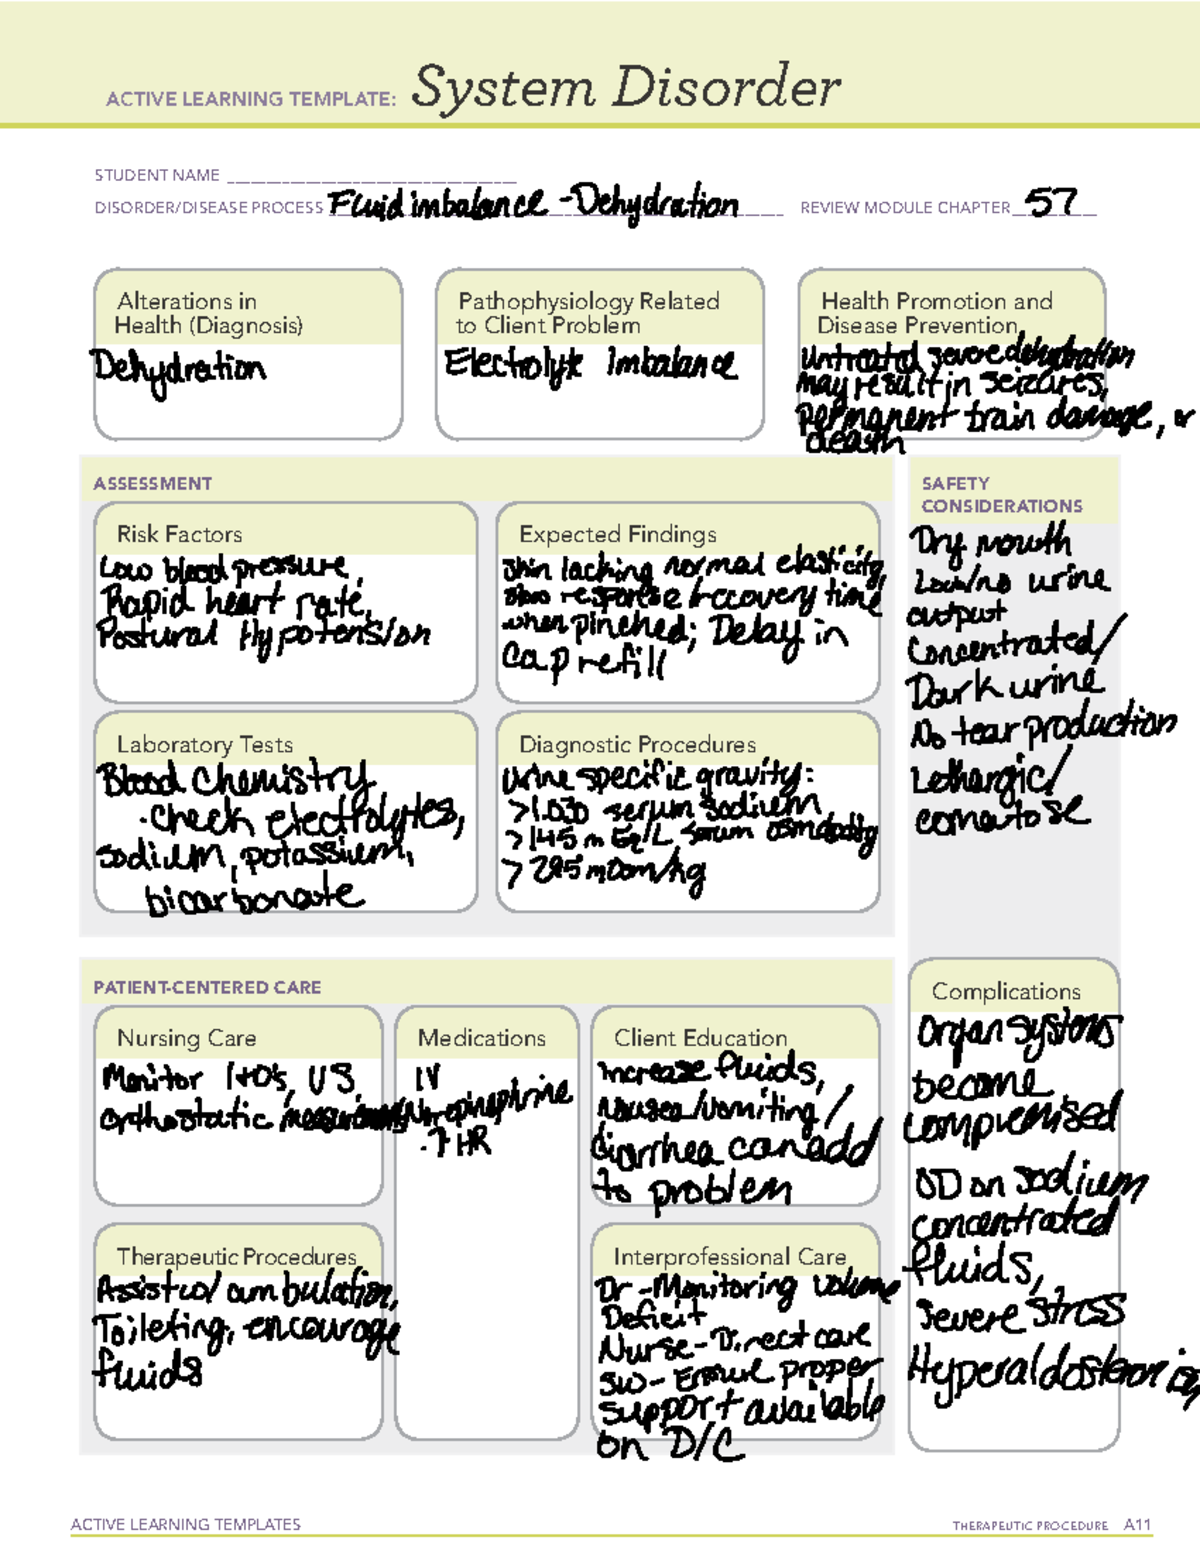 ACTIVE LEARNING TEMPLATE: System Disorder
STUDENT NAME
DISORDER/DISEASE PROCESS Fluid imbalance - Dehydration REVIEW MODULE CHAPTER 57
Alterations in
Health (Diagnosis)
Dehydration
Pathophysiology Related
to Client Problem
Electrolyte Imbalance
Health Promotion and
Disease Prevention
Untreated severe dehydration
may result in seizures,
permanent brain damage, or
death
ASSESSMENT
Risk Factors
Low blood pressure,
Rapid heart rate,
Postural Hypotension
Expected Findings
skin lacking normal elasticity,
slow response recovery time
when pinched; Delay in
Cap refill
Laboratory Tests
Blood Chemistry
- check electrolytes,
sodium, potassium,
bicarbonate
Diagnostic Procedures
Urine specific gravity:
>1.030 serum sodium
>145 mEq/L serum osmolality
>295 mOsm/kg
SAFETY
CONSIDERATIONS
Dry mouth
Low/no urine
output
Concentrated/
Dark urine
No tear production
Lethargic/
comatose
PATIENT-CENTERED CARE
Nursing Care
Monitor I+O's, VS,
orthostatic
Medications
IV
Norepinephrine
- ↑ HR
Client Education
Increase fluids,
Nausea/vomiting/
diarrhea can add
to problem
Therapeutic Procedures
Assist w/ ambulation,
Toileting, encourage
fluids
Interprofessional Care
Dr - Monitoring volume
Deficit
Nurse - Direct care
SW - Ensure proper
support available
on D/C
Complications
Organ systems
become
compromised
OD on sodium
concentrated
fluids,
Severe stress
ACTIVE LEARNING TEMPLATES
THERAPEUTIC PROCEDURE A11